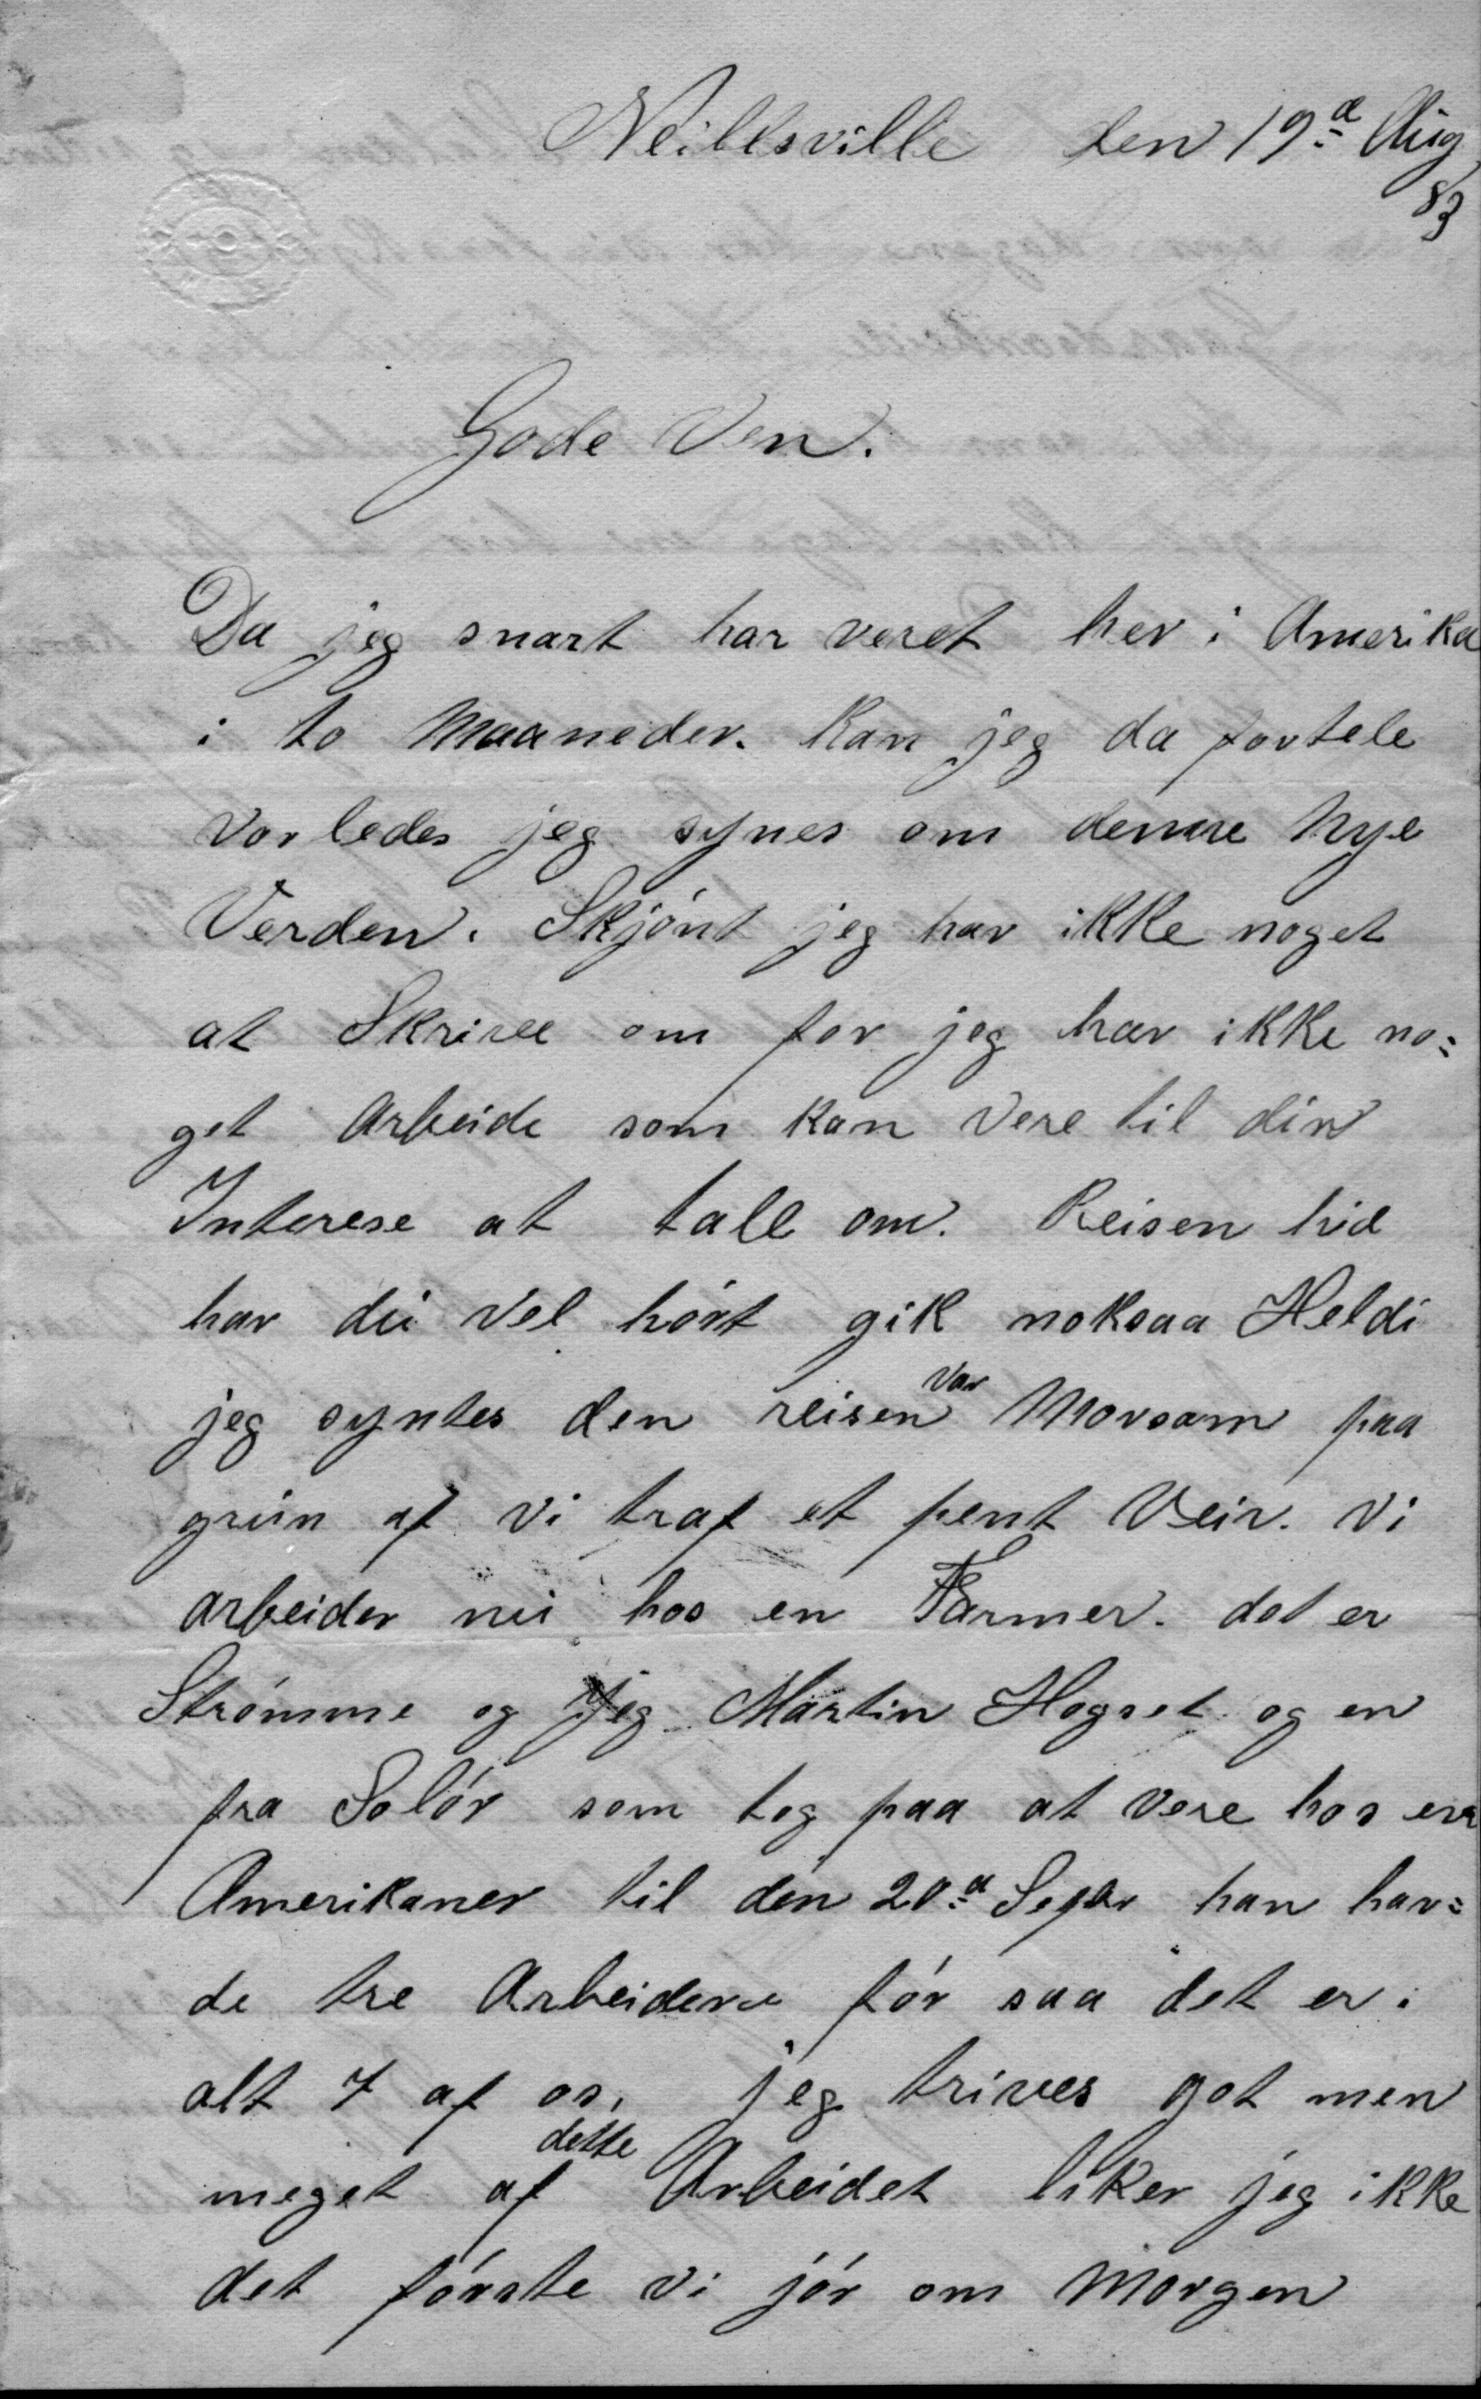 Neillsville den 19d Aug
83
Gode Ven.
Da jeg snart har veret her i Amerika
i to Maaneder. kan jeg da fortele
vorledes jeg synes om denne Nye
Verden. Skjónt jeg har ikke noget
at Skrive om for jeg har ikke no=
get Arbeide som kan vere til din
Interese at tale om. Reisen hid
har du vel hórt gik noksaa Heldi
jeg syntes den reisen var Morsam paa
grun af vi traf et pent Veir. Vi
arbeider nu hos en Farmer. det er
Strómme og Jeg Martin Hogset og en
fra Solór som tog paa at vere hos en
Amerikaner til den 20d Sepbr han hav=
de tre Arbeidere fór saa det er i
alt 7 af os, jeg trives got men
meget af dette Arbeidet liker jeg ikke
det fórste vi jór om Morgen